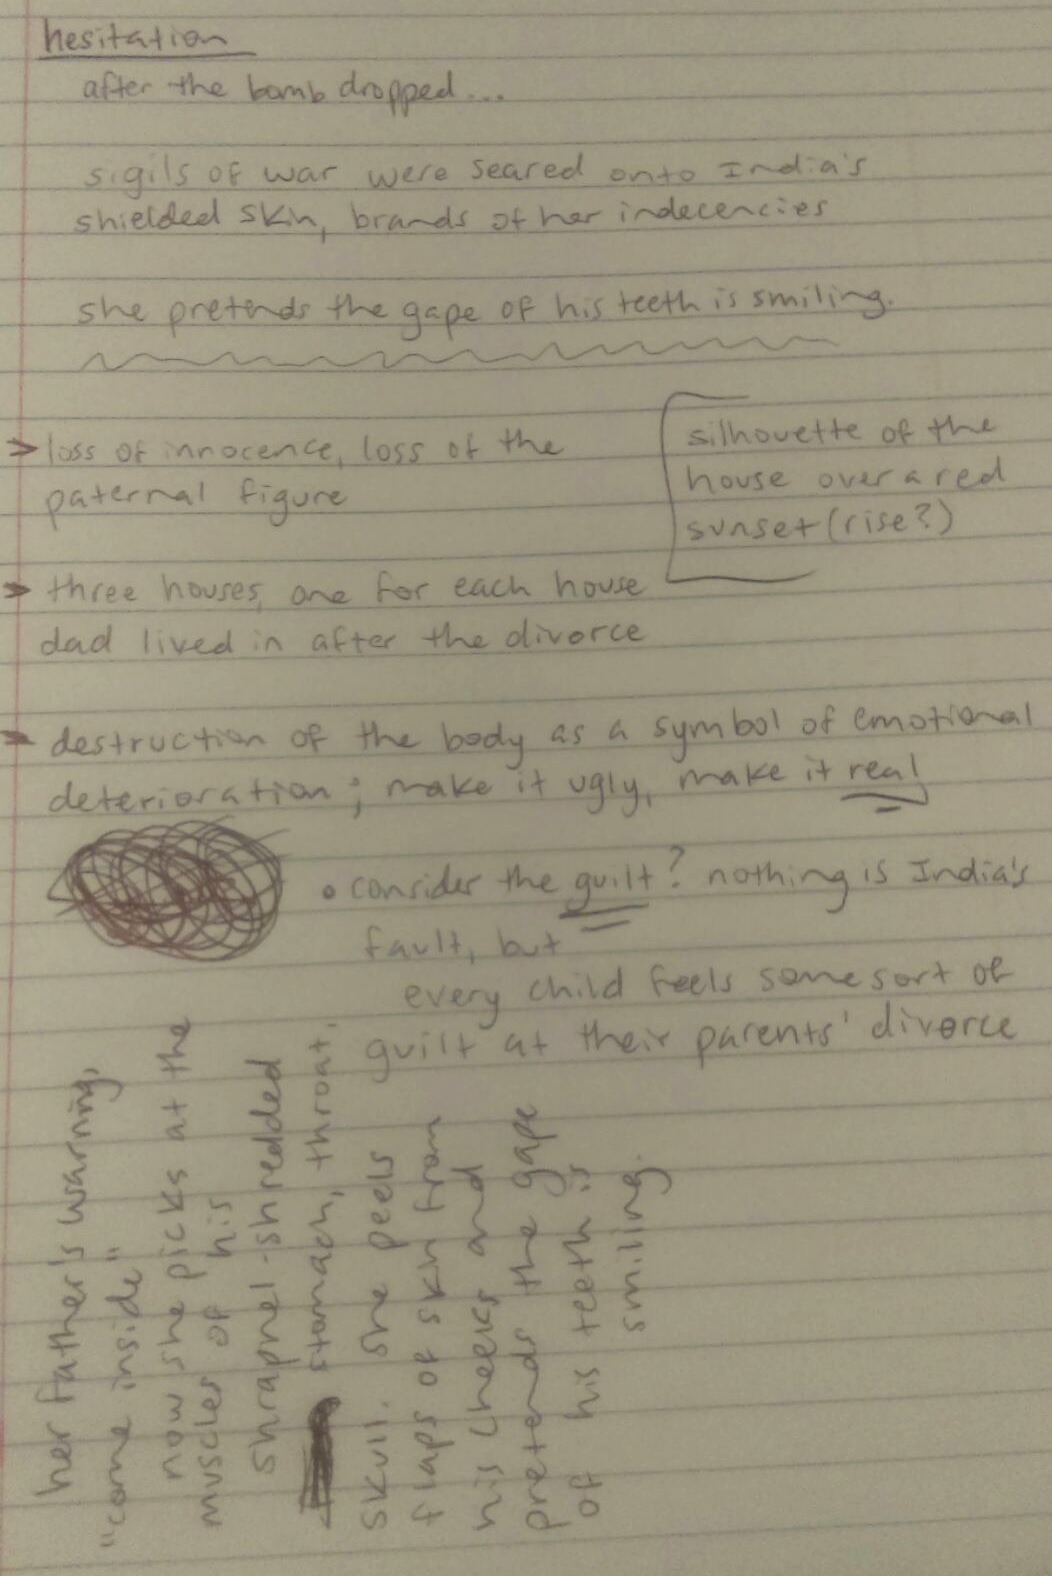 hesitation
after the bomb dropped...
sigils of war were seared onto India's
shielded skin, brands of her indecencies
she pretends the gape of his teeth is smiling.
loss of innocence, loss of the
paternal figure
silhouette of the
house over a red
sunset (rise?)
three houses, one for each house
dad lived in after the divorce
destruction of the body as a symbol of emotional
deterioration; make it ugly, make it real
• consider the guilt? nothing is India's
fault, but
every child feels some sort of
guilt at their parents' divorce
her father's warning,
"come inside"
now she picks at the
muscles of his
shrapnel-shredded
stomach, throat,
skull. she peels
flaps of skin from
his cheeks and
pretends the gape
of his teeth is
smiling.